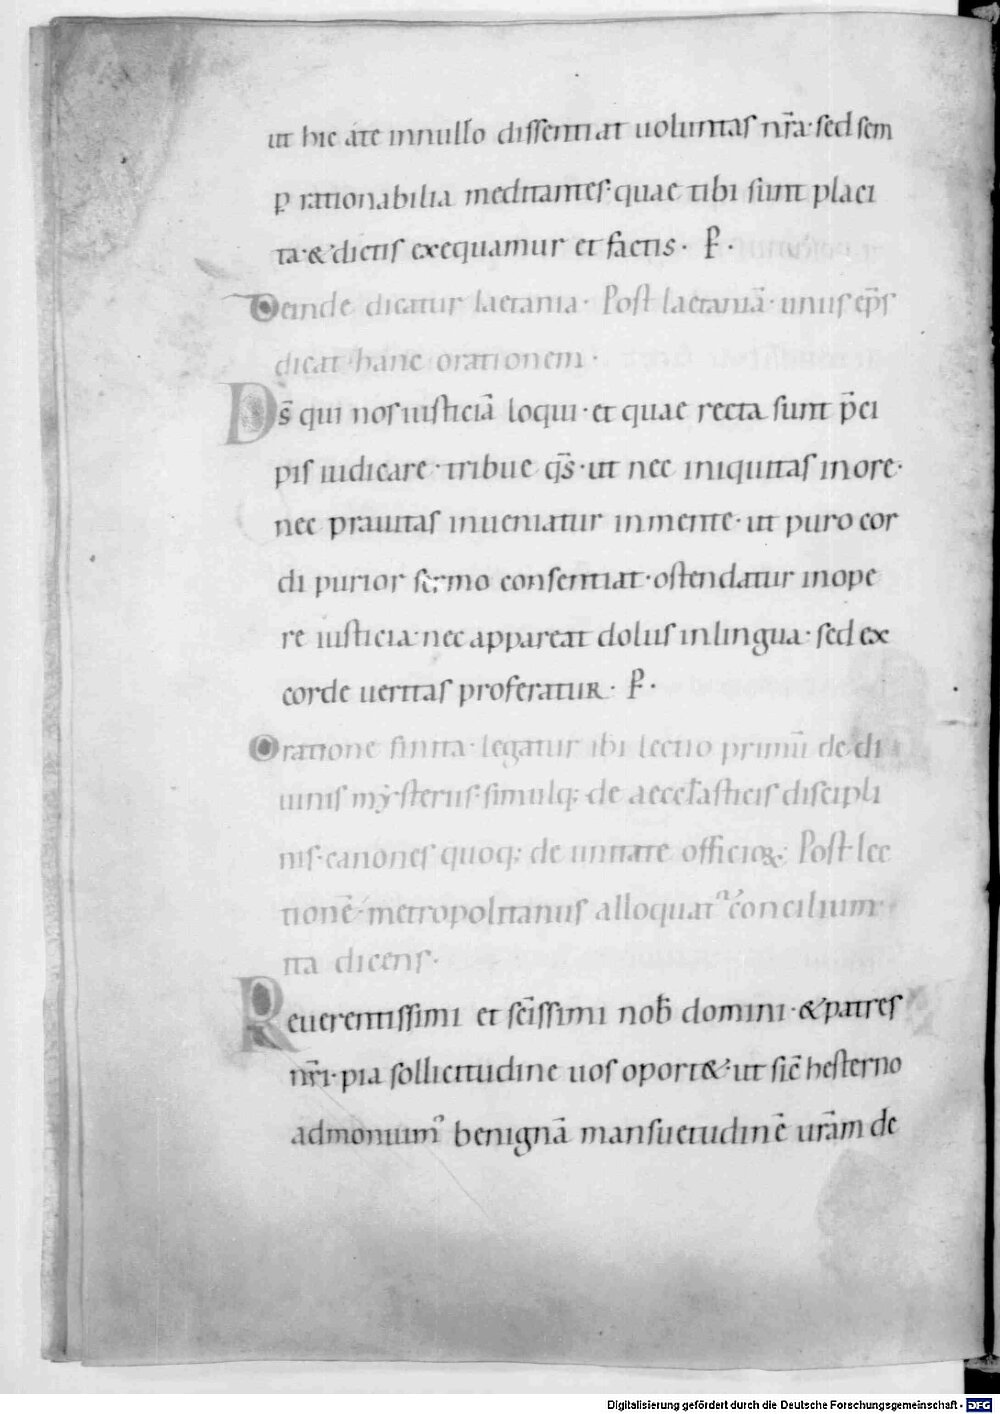 ut hic a te in nullo dissentiat uoluntas nr̄a· sed sem
p̱ rationabilia meditantes· quae tibi sunt placi
ta· & dictis exequamur et factis· P̄·
Deinde dicatur laetania· Post laetaniā· unus ep̄s
dicat hanc orationem·
Ds̄ qui nos iusticiā loqui· et quae recta sunt p̄ci
pis iudicare· tribue qs̄· ut nec iniquitas in ore·
nec prauitas inueniatur in mente· ut puro cor
di purior sermo consentiat· ostendatur in ope
re iusticia· nec appareat dolus in lingua· sed ex
corde ueritas proferatur· P̄·
Oratione finita· legatur ibi lectio primū de di
uinis mysteriis· simulq; de aeccl̄asticis discipli
nis· canones quoq; de unitate officio&; Post lec
tionē· metropolitanus alloquat᷒ concilium·
ita dicens·
Reuerentissimi et sc̄issimi nob̄ domini· & patres
nr̄i· pia sollicitudine uos oport&· ut sic̄ hesterno
admonuim᷒ benignā mansuetudinē ur̄am de
Digitalisierung gefördert durch die Deutsche Forschungsgemeinschaft - DFG